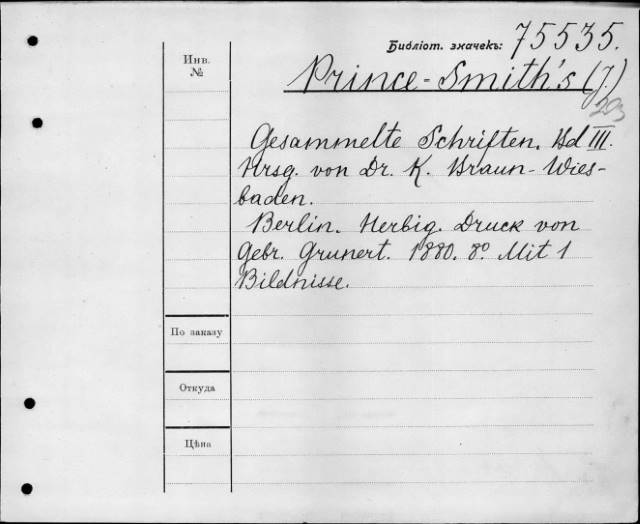 Библіот. значекъ: 75535.
Инв. №
Prince-Smith's (J.)
293
Gesammelte Schriften. Bd III.
Hrsg. von Dr. K. Braun-Wies-
baden.
Berlin. Herbig. Druck von
Gebr. Grunert. 1880. 8º. Mit 1
Bildnisse.
По заказу
Откуда
Цѣна